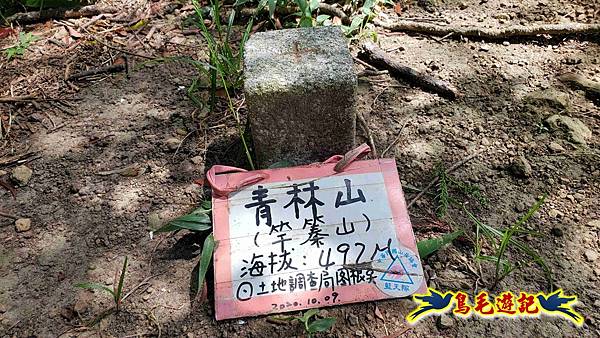 青林山
(竿蓁山)
海拔:497M
⊙土地調查局圖根点
2020.10.09.
藍天隊
鳥毛遊記